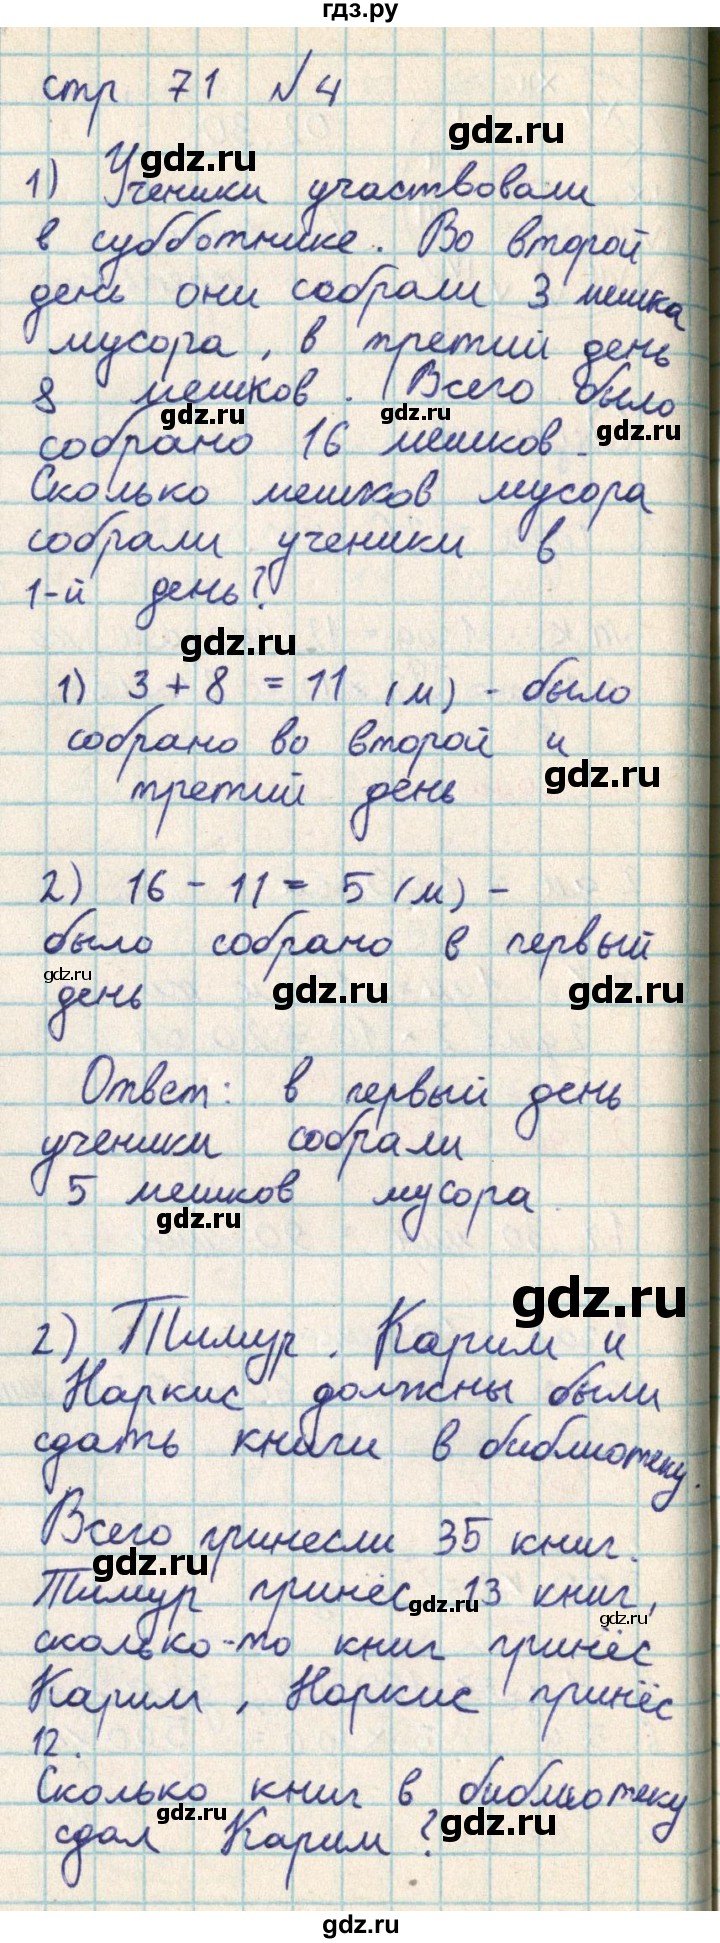 гдз.ру
стр 71 №4
gdz.ru
gdz.ru
1) Ученики участвовали
в субботнике. Во второй
день они собрали 3 мешка
мусора, в третий день
8 мешков. Всего было
gdz.ru
gdz.ru
gdz.ru
собрано 16 мешков.
Сколько мешков мусора
собрали ученики в
1-й день?
gdz.ru
1) 3 + 8 = 11 (м) - было
собрано во второй и
gdz.ru
третий день
2) 16 - 11 = 5 (м) -
было собрано в первый
gdz.ru
день
gdz.ru
gdz.ru
Ответ: в первый день
ученики собрали
5 мешков мусора
gdz.ru
gdz.ru
2) Тимур, Карим и
Наркис должны были
сдать книги в библиотеку.
Всего принесли 35 книг.
gdz.ru
Тимур принёс 13 книг,
gdz.ru
gdz.ru
сколько-то книг принёс
Карим, Наркис принёс
12.
Сколько книг в библиотеку
gdz.ru
gdz.ru
сдал Карим?
gdz.ru